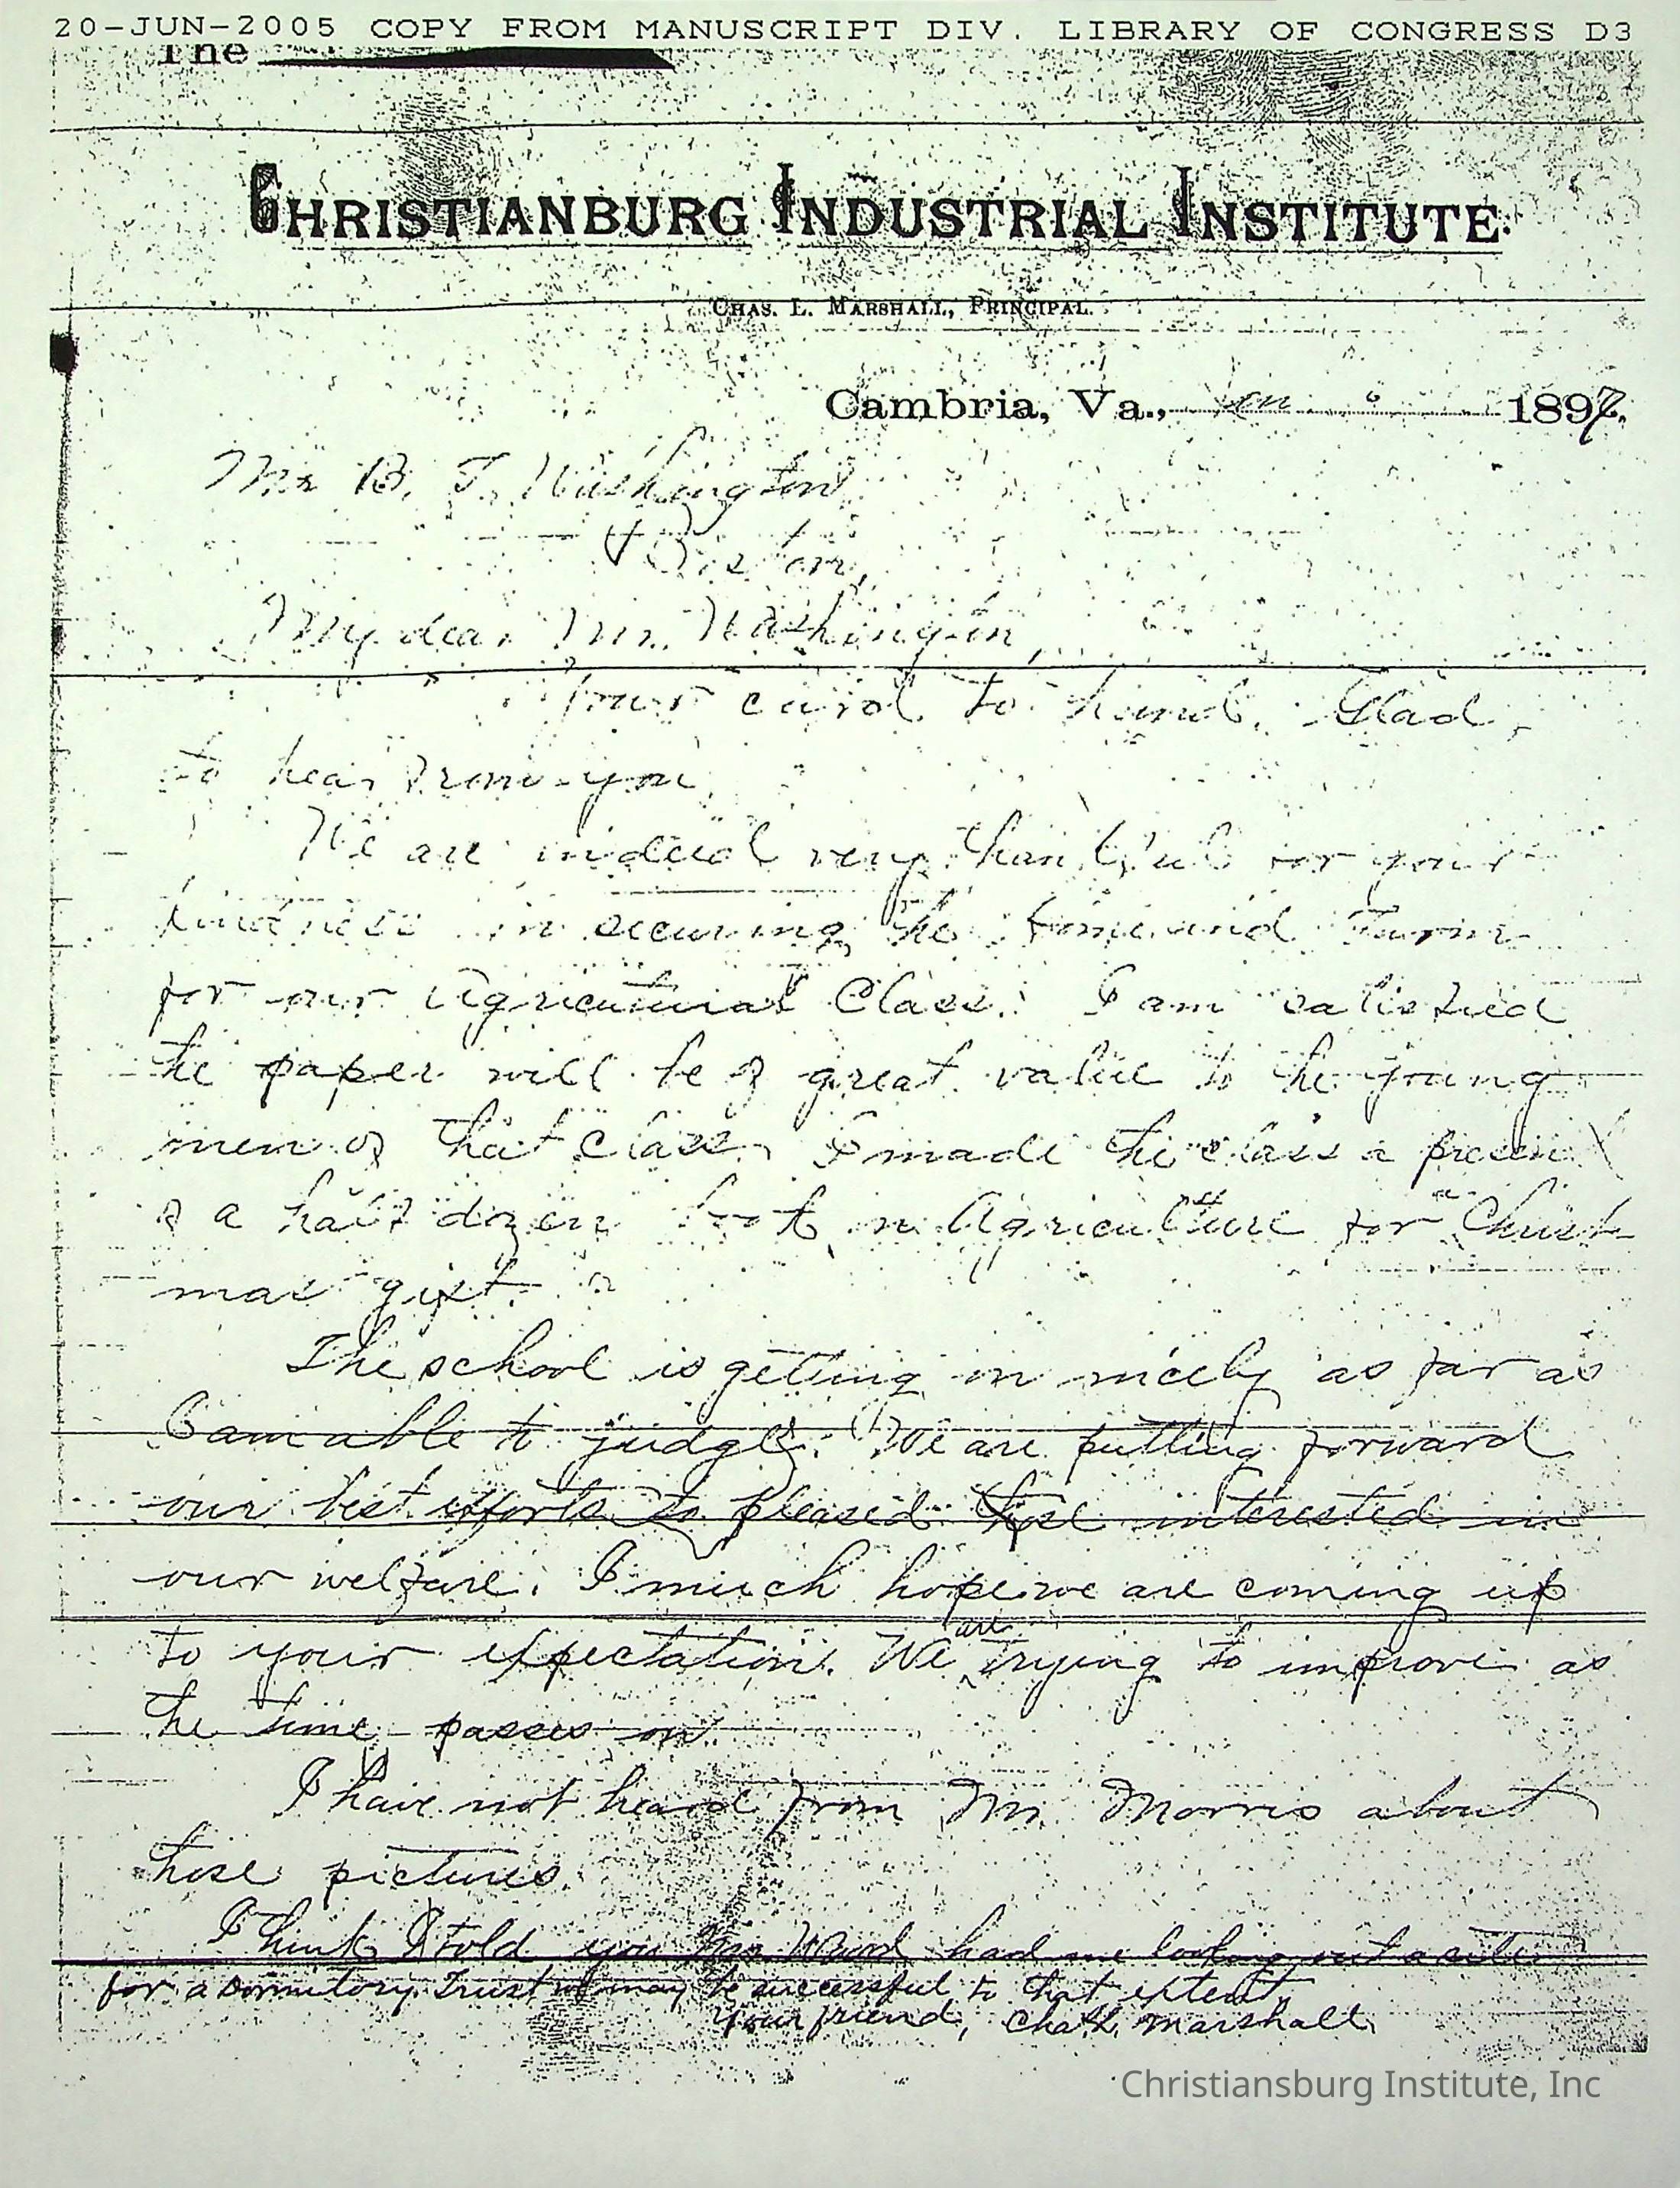 20-JUN-2005 COPY FROM MANUSCRIPT DIV. LIBRARY OF CONGRESS D3
The
CHRISTIANBURG INDUSTRIAL INSTITUTE.
CHAS. L. MARSHALL, PRINCIPAL.
Cambria, Va., 1897.
Mr B. T. Washington
Boston,
My dear Mr. Washington,
Your card to hand. Glad
to hear from you.
We are indeed very thankful for your
kindness in securing the Home and Farm
for our Agricultural Class. I am satisfied
the paper will be of great value to the young
men of that class. I made the class a present
of a half dozen in Agriculture for Christ
mas gift.
The school is getting on nicely as far as
I am able to judge. We are putting forward
our best efforts to pleased those interested in
our welfare. I much hope we are coming up
to your expectation. We are trying to improve as
the time passes on.
I have not heard from Mr. Morris about
those pictures.
I think I told you Ward had me looking out a site
for a dormitory. Trust we may be successful to that extent.
Your friend, Chas. L. Marshall.
Christiansburg Institute, Inc